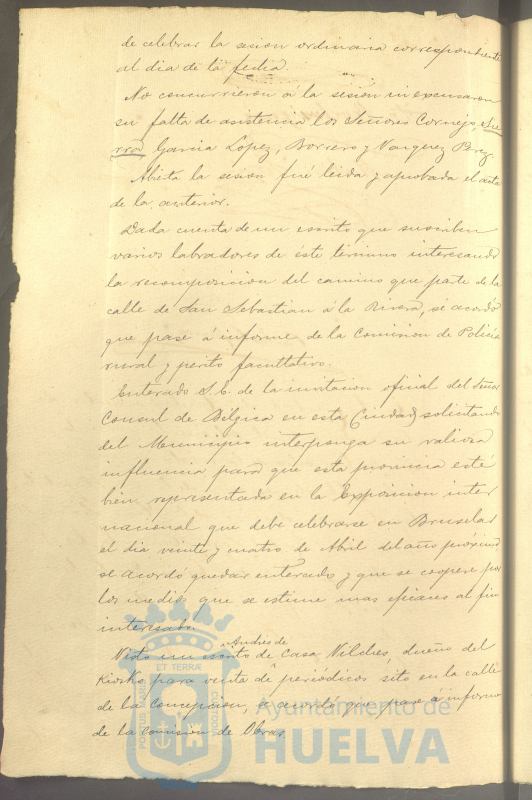 de celebrar la sesion ordinaria correspondiente
al dia de la fecha.
No concurrieron á la sesión ni excusaron
su falta de asistencia los Señores Cornejo,
Garcia Lopez, Borrero y Vazquez Perez
Abierta la sesion fué leida y aprobada el acta
de la anterior.
Dada cuenta de un escrito que suscriben
varios labradores de éste término interesando
la recomposicion del camino que parte de la
calle de San Sebastian á la Rivera, se acordó
que pase á informe de la Comision de Policía
rural y perito facultativo.
Enterado S.E. de la invitacion oficial del Señor
Consul de Belgica en esta Ciudad, solicitando
del Municipio interponga su valiosa
influencia para que esta provincia esté
bien representada en la Exposicion inter
nacional que debe celebrarse en Bruselas
el dia veinte y cuatro de Abril del año próximo
se acordó quedar enterado y que se coopere por
los medios que se estime mas eficaces al fin
interesado.
Andrés de
Visto un escrito de Casa Vilches, dueño del
Kiosko para venta de periódicos sito en la calle
de la Concepcion, se acordó que pase á informe
de la comision de Obras.
PORTUS MARIS
ET TERRÆ
CUSTODIA
Ayuntamiento de
HUELVA